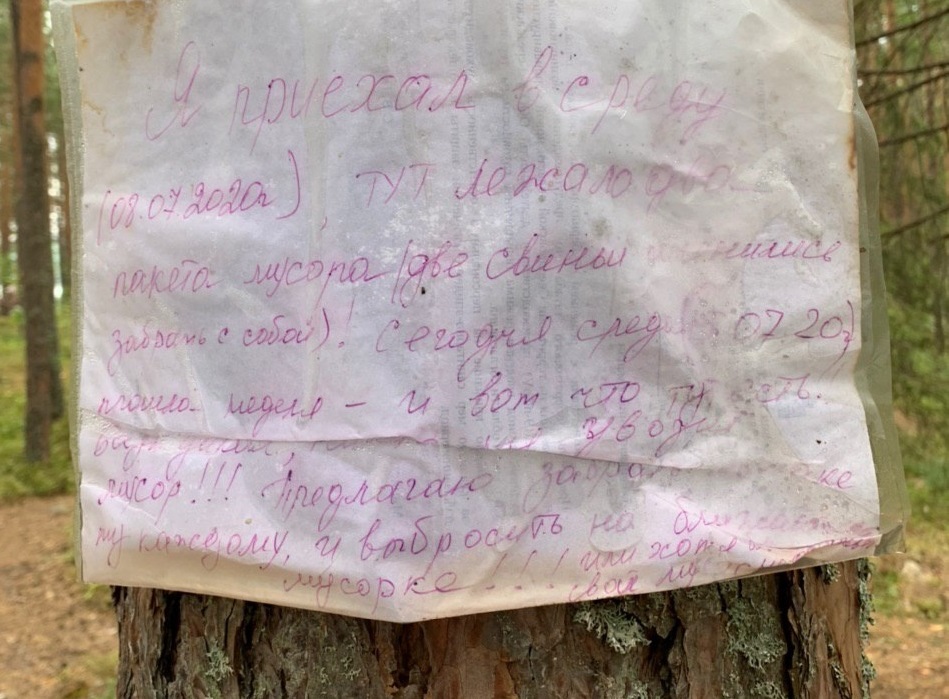 Я приехал в среду
(08.07.2020г), тут лежало два
пакета мусора (две свиньи поленились
забрать с собой)! Сегодня среда 07 20г
прошла неделя – и вот что тут есть.
мусор!!! Предлагаю забрать
му каждому, и выбросить на ближайшей
мусорке!!! или хотя бы
свой